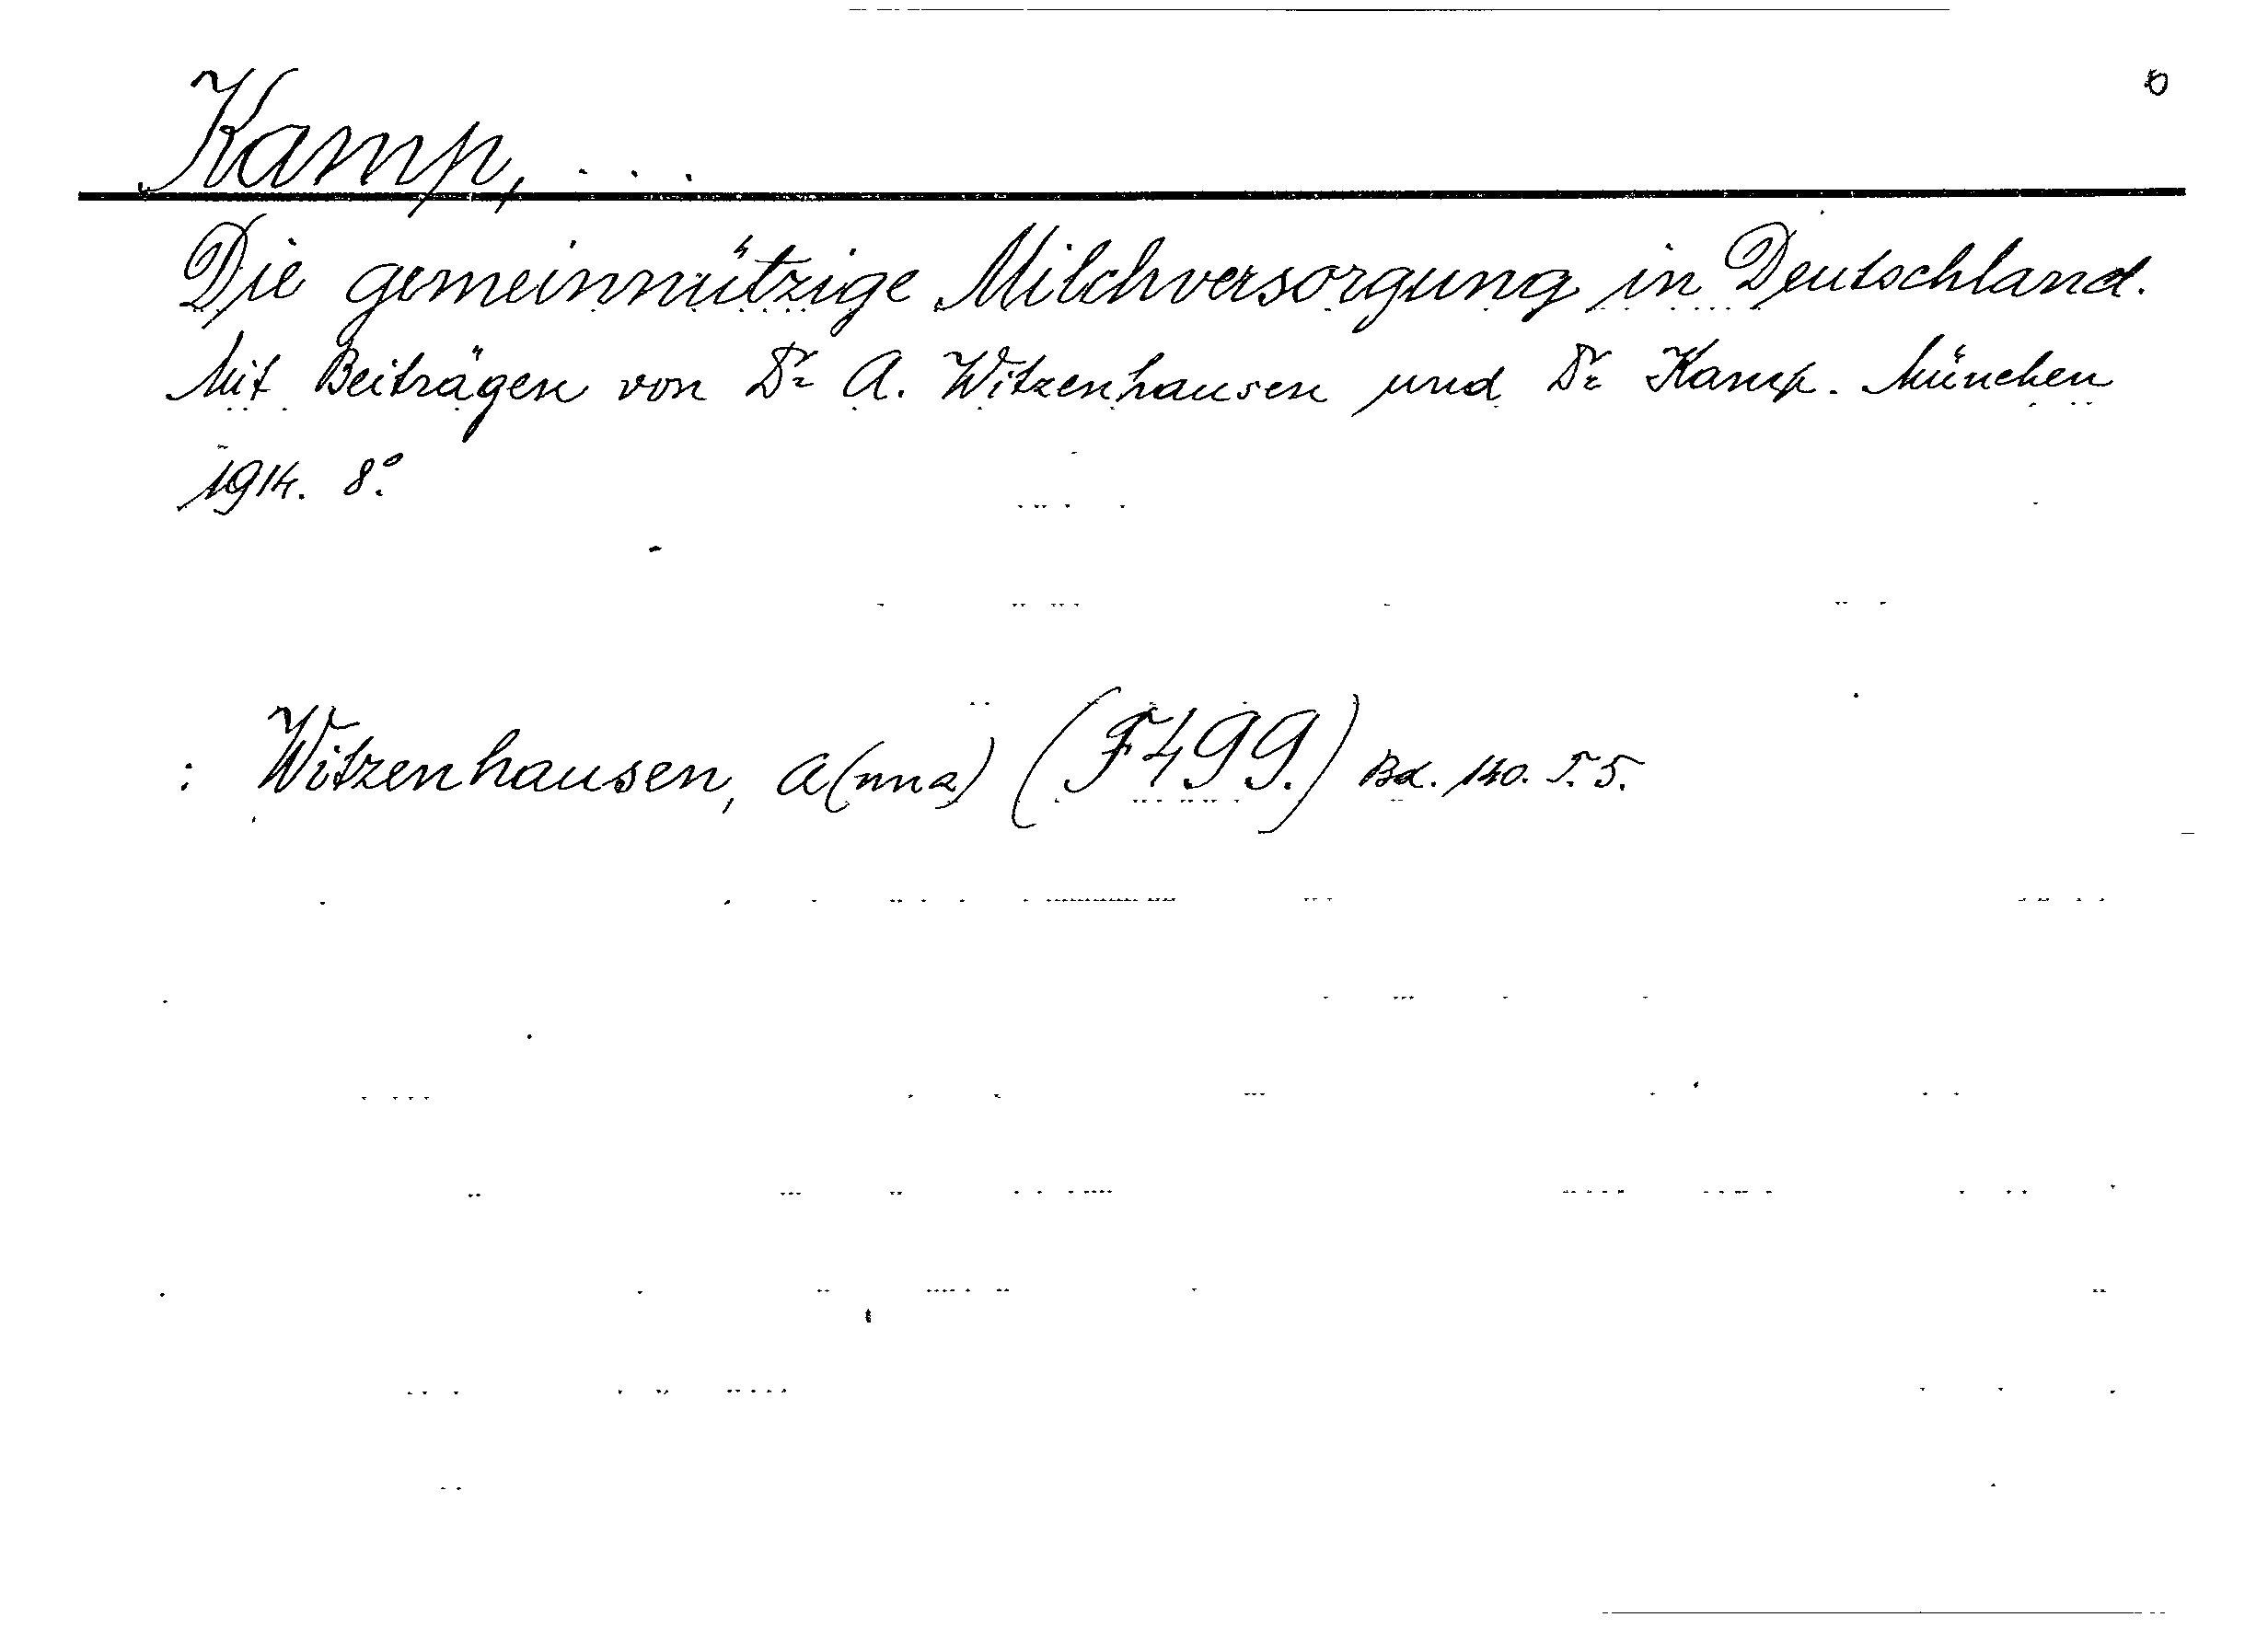 Kamp, . . .
Die gemeinnützige Milchversorgung in Deutschland.
Mit Beiträgen von Dr A. Witzenhausen und Dr Kamp. München
1914. 8°.
: Witzenhausen, A(nna) (F499.) Bd. 140. T. 5.